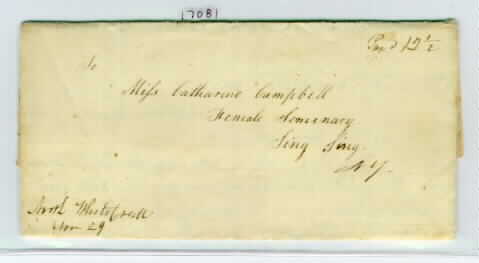 1708
Pay'd 12 1/2
To
Miss Catharine Campbell
Female Semenary
Sing Sing
N Y
North White Creek
Nov 29